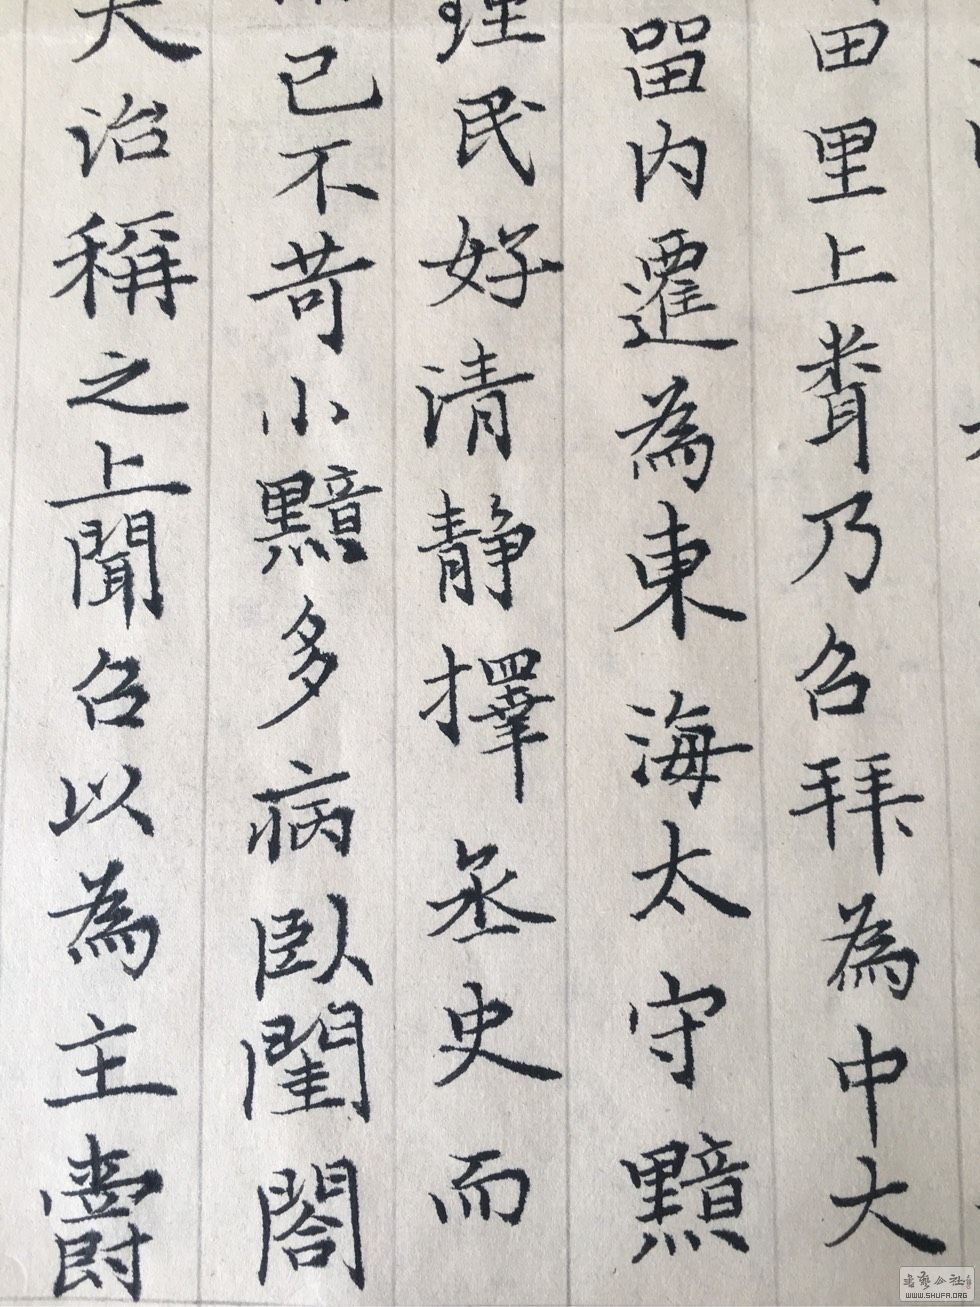 田里上聞乃召拜為中大
留內遷為東海太守黯
理民好清靜擇丞史而
已不苛小黯多病臥閨閤
大治稱之上聞召以為主爵
WWW.SHUFA.ORG